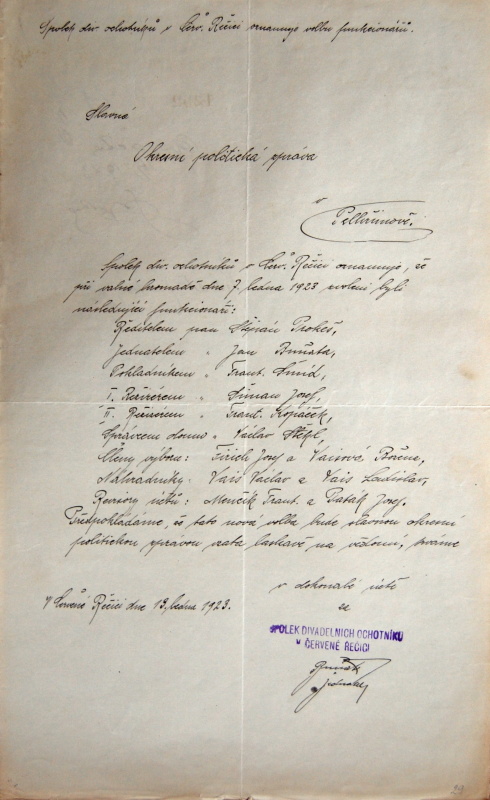 Spolek div. ochotníků v Červ. Řečici oznamuje volbu funkcionářů.
Slavná
Okresní politická správa
v
Pelhřimově.
Spolek div. ochotníků v Červ. Řečici oznamuje, že
při valné hromadě dne 7. ledna 1923 zvoleni byli
následující funkcionáři:
Ředitelem pan Štěpán Prokeš,
Jednatelem " Jan
Pokladníkem " Frant. Šmíd,
I. Režisérem " Josef,
II. Režisérem " Frant. Kopáček,
Správcem domu " Václav
Členy výboru: Josef a Vaisová Božena,
Náhradníky: Vais Václav a Vais Ladislav,
Revisory účtů: Menčík Frant. a Paták Josef.
Předpokládáme, že tato nová volba bude slavnou okresní
politickou správou vzata laskavě na vědomí, známe
v dokonalé úctě
za
V Červené Řečici dne 13. ledna 1923.
SPOLEK DIVADELNÍCH OCHOTNÍKŮ
V ČERVENÉ ŘEČICI
jednatel